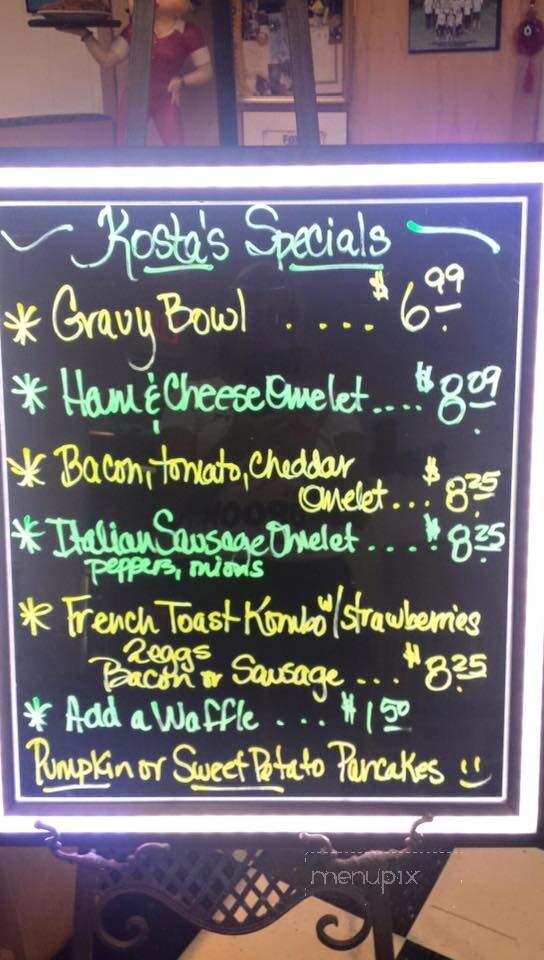 Kosta's Specials
* Gravy Bowl .... $6.99
* Ham & Cheese Omelet.... $8.09
* Bacon, tomato, Cheddar
Omelet... $8.25
* Italian Sausage Omelet.... $8.25
peppers, onions
* French Toast Kombo w/strawberries
2 eggs
Bacon or Sausage ... $8.25
* Add a Waffle ... $1.50
Pumpkin or Sweet Potato Pancakes
menupix